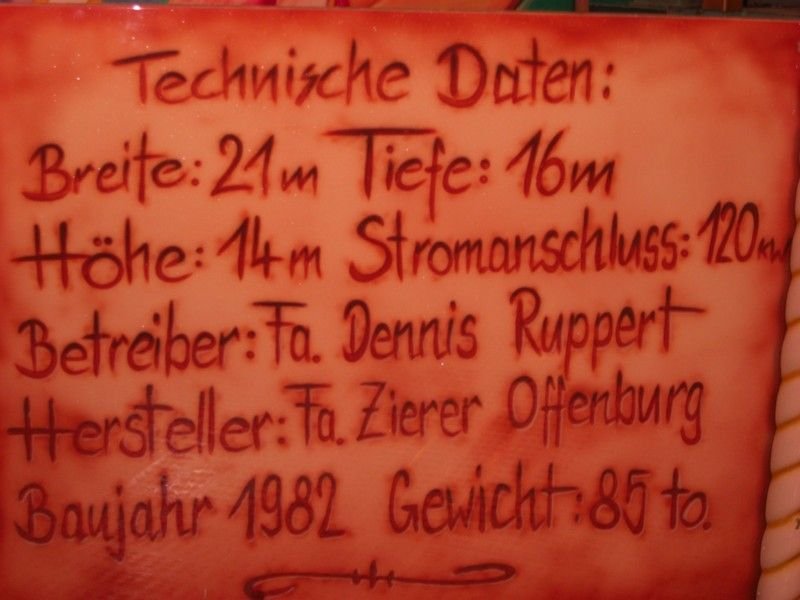 Technische Daten:
Breite: 21m Tiefe: 16m
Höhe: 14m Stromanschluss: 120kw
Betreiber: Fa. Dennis Ruppert
Hersteller: Fa. Zierer Offenburg
Baujahr 1982 Gewicht: 85 to.